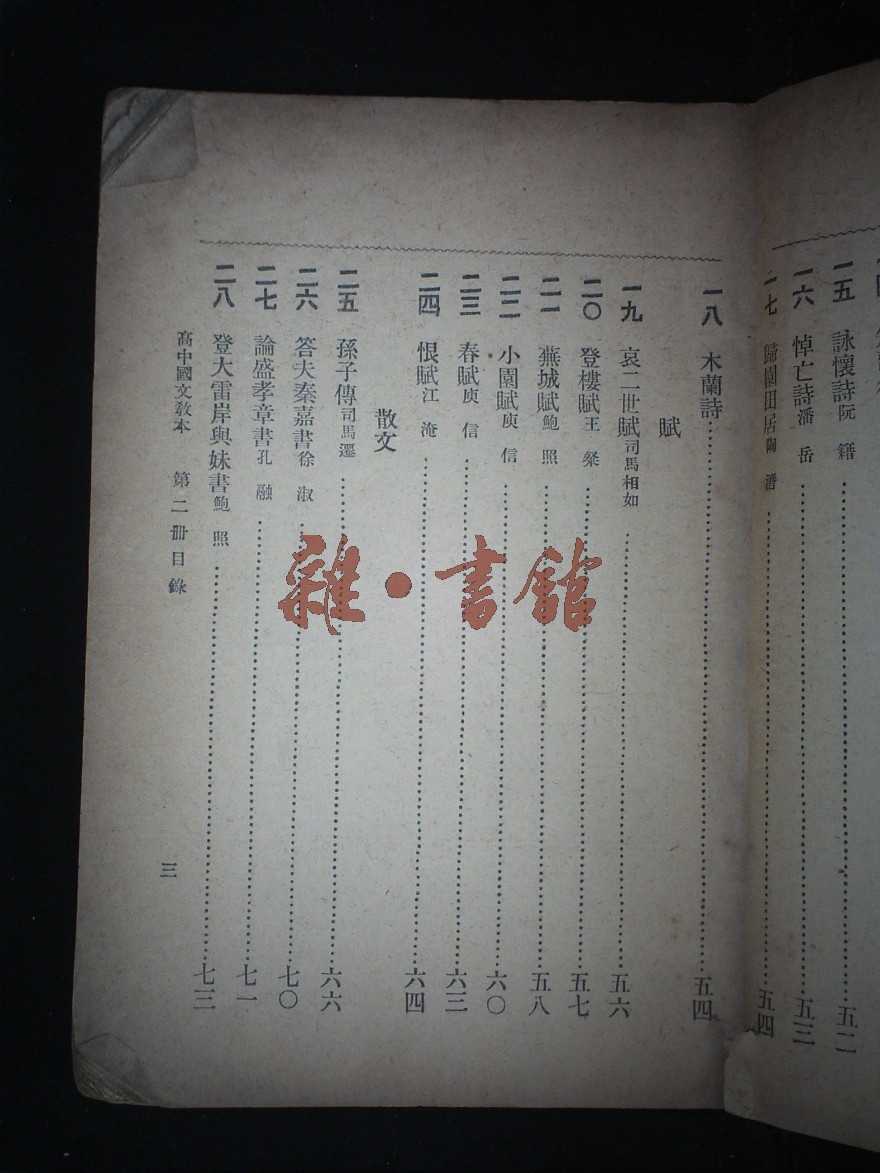 一五 詠懷詩 阮籍 五二
一六 悼亡詩 潘岳 五三
一七 歸園田居 陶潛 五四
一八 木蘭詩 五四
賦
一九 哀二世賦 司馬相如 五六
二〇 登樓賦 王粲 五七
二一 蕪城賦 鮑照 五八
二二 小園賦 庾信 六〇
二三 春賦 庾信 六三
二四 恨賦 江淹 六四
散文
二五 孫子傳 司馬遷 六六
二六 答夫秦嘉書 徐淑 七〇
二七 論盛孝章書 孔融 七一
二八 登大雷岸與妹書 鮑照 七三
高中國文教本 第二冊目錄
三
雜·書館